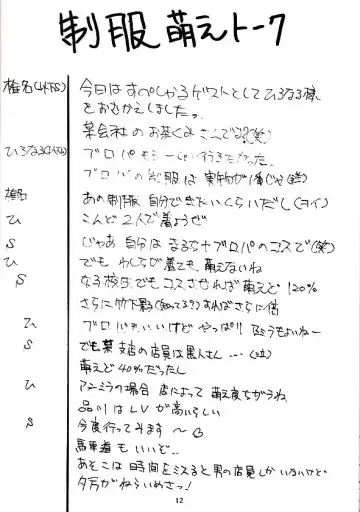 制服萌えトーク
椎名(以下S) 今日はすぺしゃるゲストとしてひろなる様
をおむかえしました。
某会社のお茶くみさんでな?(笑)
ひろなる(以下ひ) ブロパもう一回行きたかった。
ブロパの制服は実物が1番じゃ
椎名 あの制服自分できたいくらいだし(ヲイ)
ひ こんど2人で着ようぜ
S じゃあ自分はまるち+ブロパのコスで(笑)
ひ でもわしらが着ても萌えないね
S なる様日でもコスさせれば萌えど120%
さらに竹下影(知ってる?)すればさらに倍
ひ ブロパもいいけどやっぱりもよいねー
S でも某支店の店員は黒人さん…(泣)
萌えど40%だったし
ひ アンミラの場合店によって萌え度ちがうね
品川はLVが高いらしい
S 今度行ってみます〜
馬車道もいいぞ..
あそこは時間をミスると男の店員しかいないけど
夕方がねらいめさっ!
12